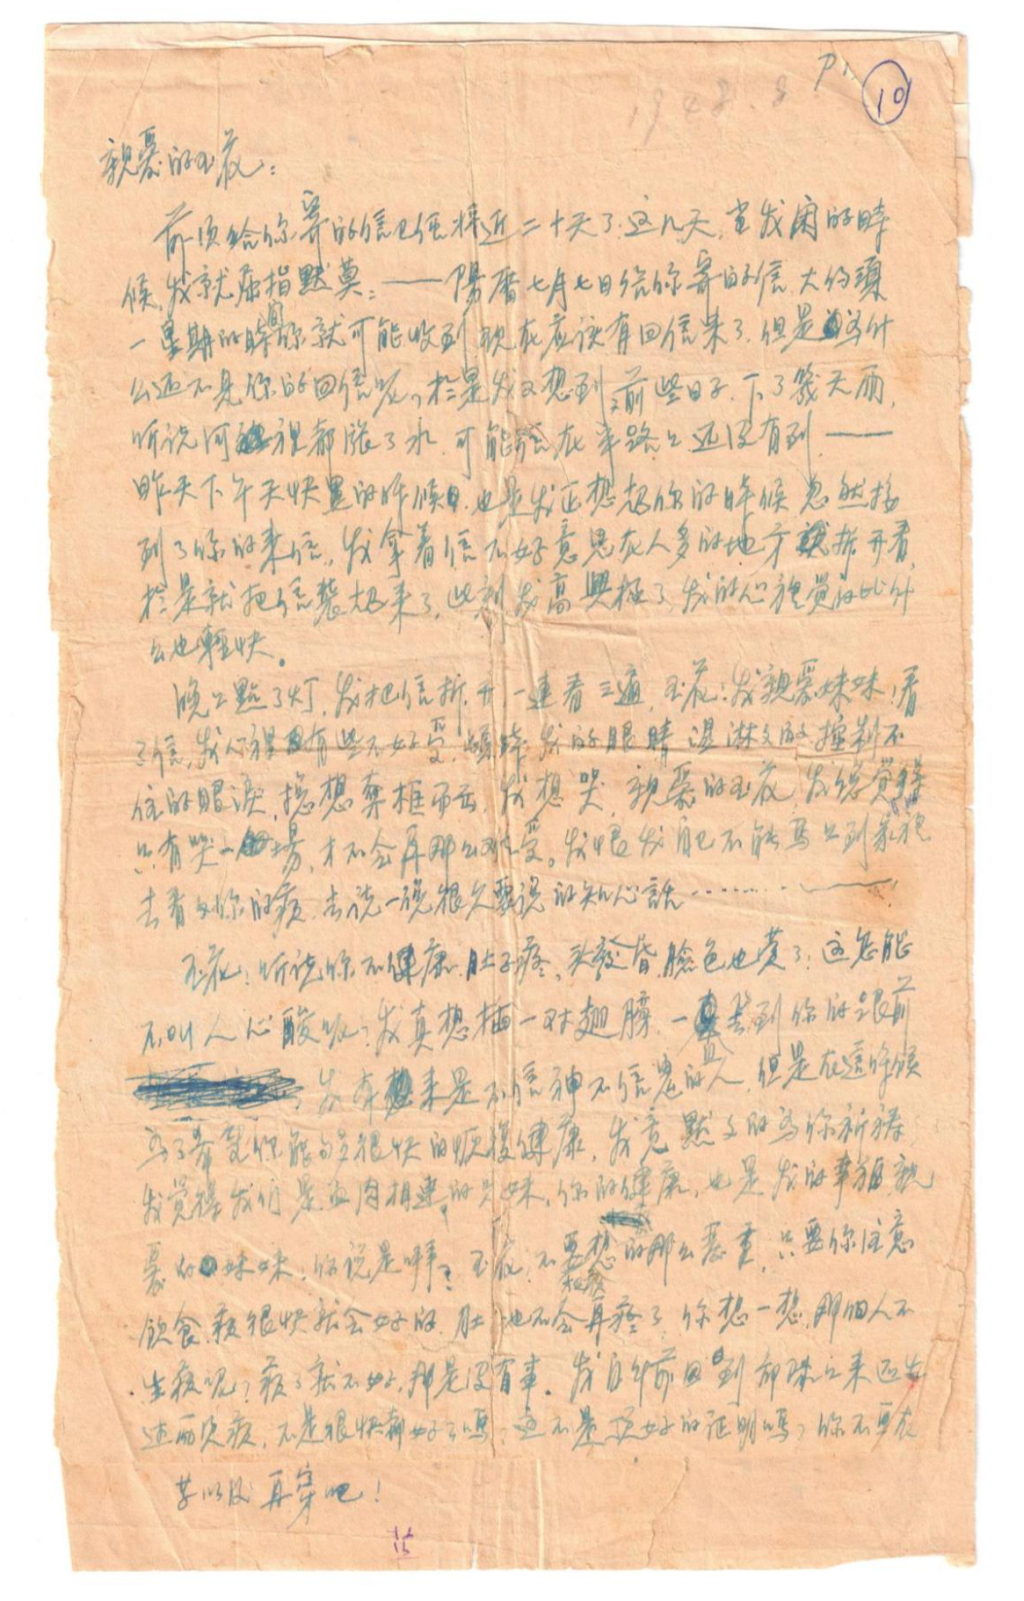 1948.8 P1 10
親愛的玉花：
前頃給你寄的信已經將近二十天了，这几天，当我闲的時
候，我就屈指默算：——陽曆七月七日给你寄的信，大约須
一星期的時间你就可能收到，现在应该有回信来了，但是为什
么还不見你的回信呢？於是我又想到前些日子，下了幾天雨，
听说河裡都漲了水，可能信在半路上还没有到——
昨天下午天快黑的時候，也是我正想起你的時候，忽然接
到了你的来信，我拿着信不好意思在人多的地方拆开看，
於是就把信裝起来了，此刻我高興極了，我的心裡覺的比什
么也輕快。
晚上點了灯，我把信拆开一連看三遍，玉花：我親愛妹妹！看
了信，我心裡有些不好受，頓時，我的眼睛湿淋文的控制不
住的眼淚，总想奪框而出，我想哭，親愛的玉花，我总覺得
只有哭一場，才不会再那么难受。我恨我自已不能馬上到家裡
去看到你的病，去说一说很久要说的知心話……——
玉花：听说你不健康，肚子疼，头發昏，臉色也黄了；这怎能
不叫人心酸呢？我真想插一对翅膀，一直到你的跟前
我本来是不信神不信鬼的人，但是在這時候
为了希望你能够很快的恢復健康，我竟默文的为你祈禱
我覺得我们是血肉相連的兄妹，你的健康，也是我的幸福，親
愛的妹妹，你说是嗎？玉花，不要想的那么悪重，只要你注意
飲食，病很快就会好的，肚子也不会再疼了，你想一想，那個人不
生病呢？病了就不好，那是没有事。我自年前回到部隊上来
两次病，不是很快都好了嗎？这不是很好的证明嗎？你不要在
等以后再穿吧！
15